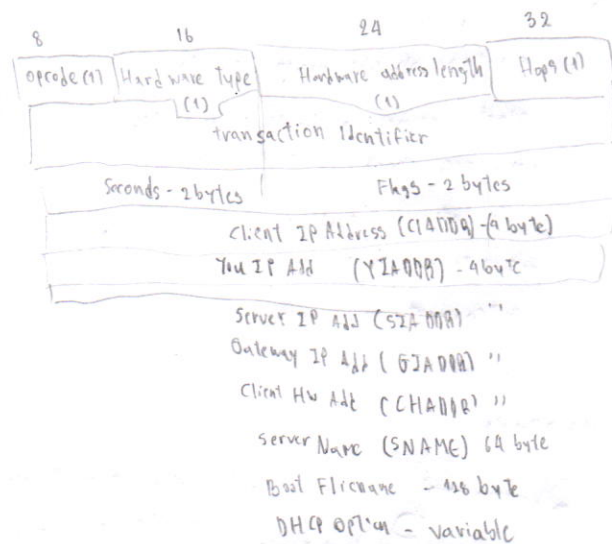 8 16 24 32
opcode (1) Hardware Type Hardware address length Hops (1)
(1) (1)
transaction Identifier
Seconds - 2 bytes Flags - 2 bytes
Client IP Address (CIADDR) - (4 byte)
You IP Add (YIADDR) - 4 byte
Server IP Add (SIADDR) "
Gateway IP Add (GIADDR) "
Client Hw Add (CHADDR) "
Server Name (SNAME) 64 byte
Boot - 128 byte
DHCP Option - variable